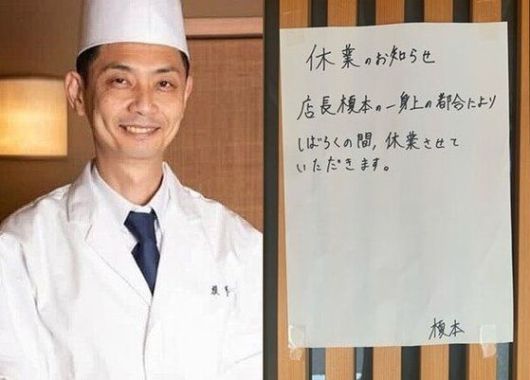 休業のお知らせ
店長榎本の一身上の都合により
しばらくの間,休業させて
いただきます。
榎本